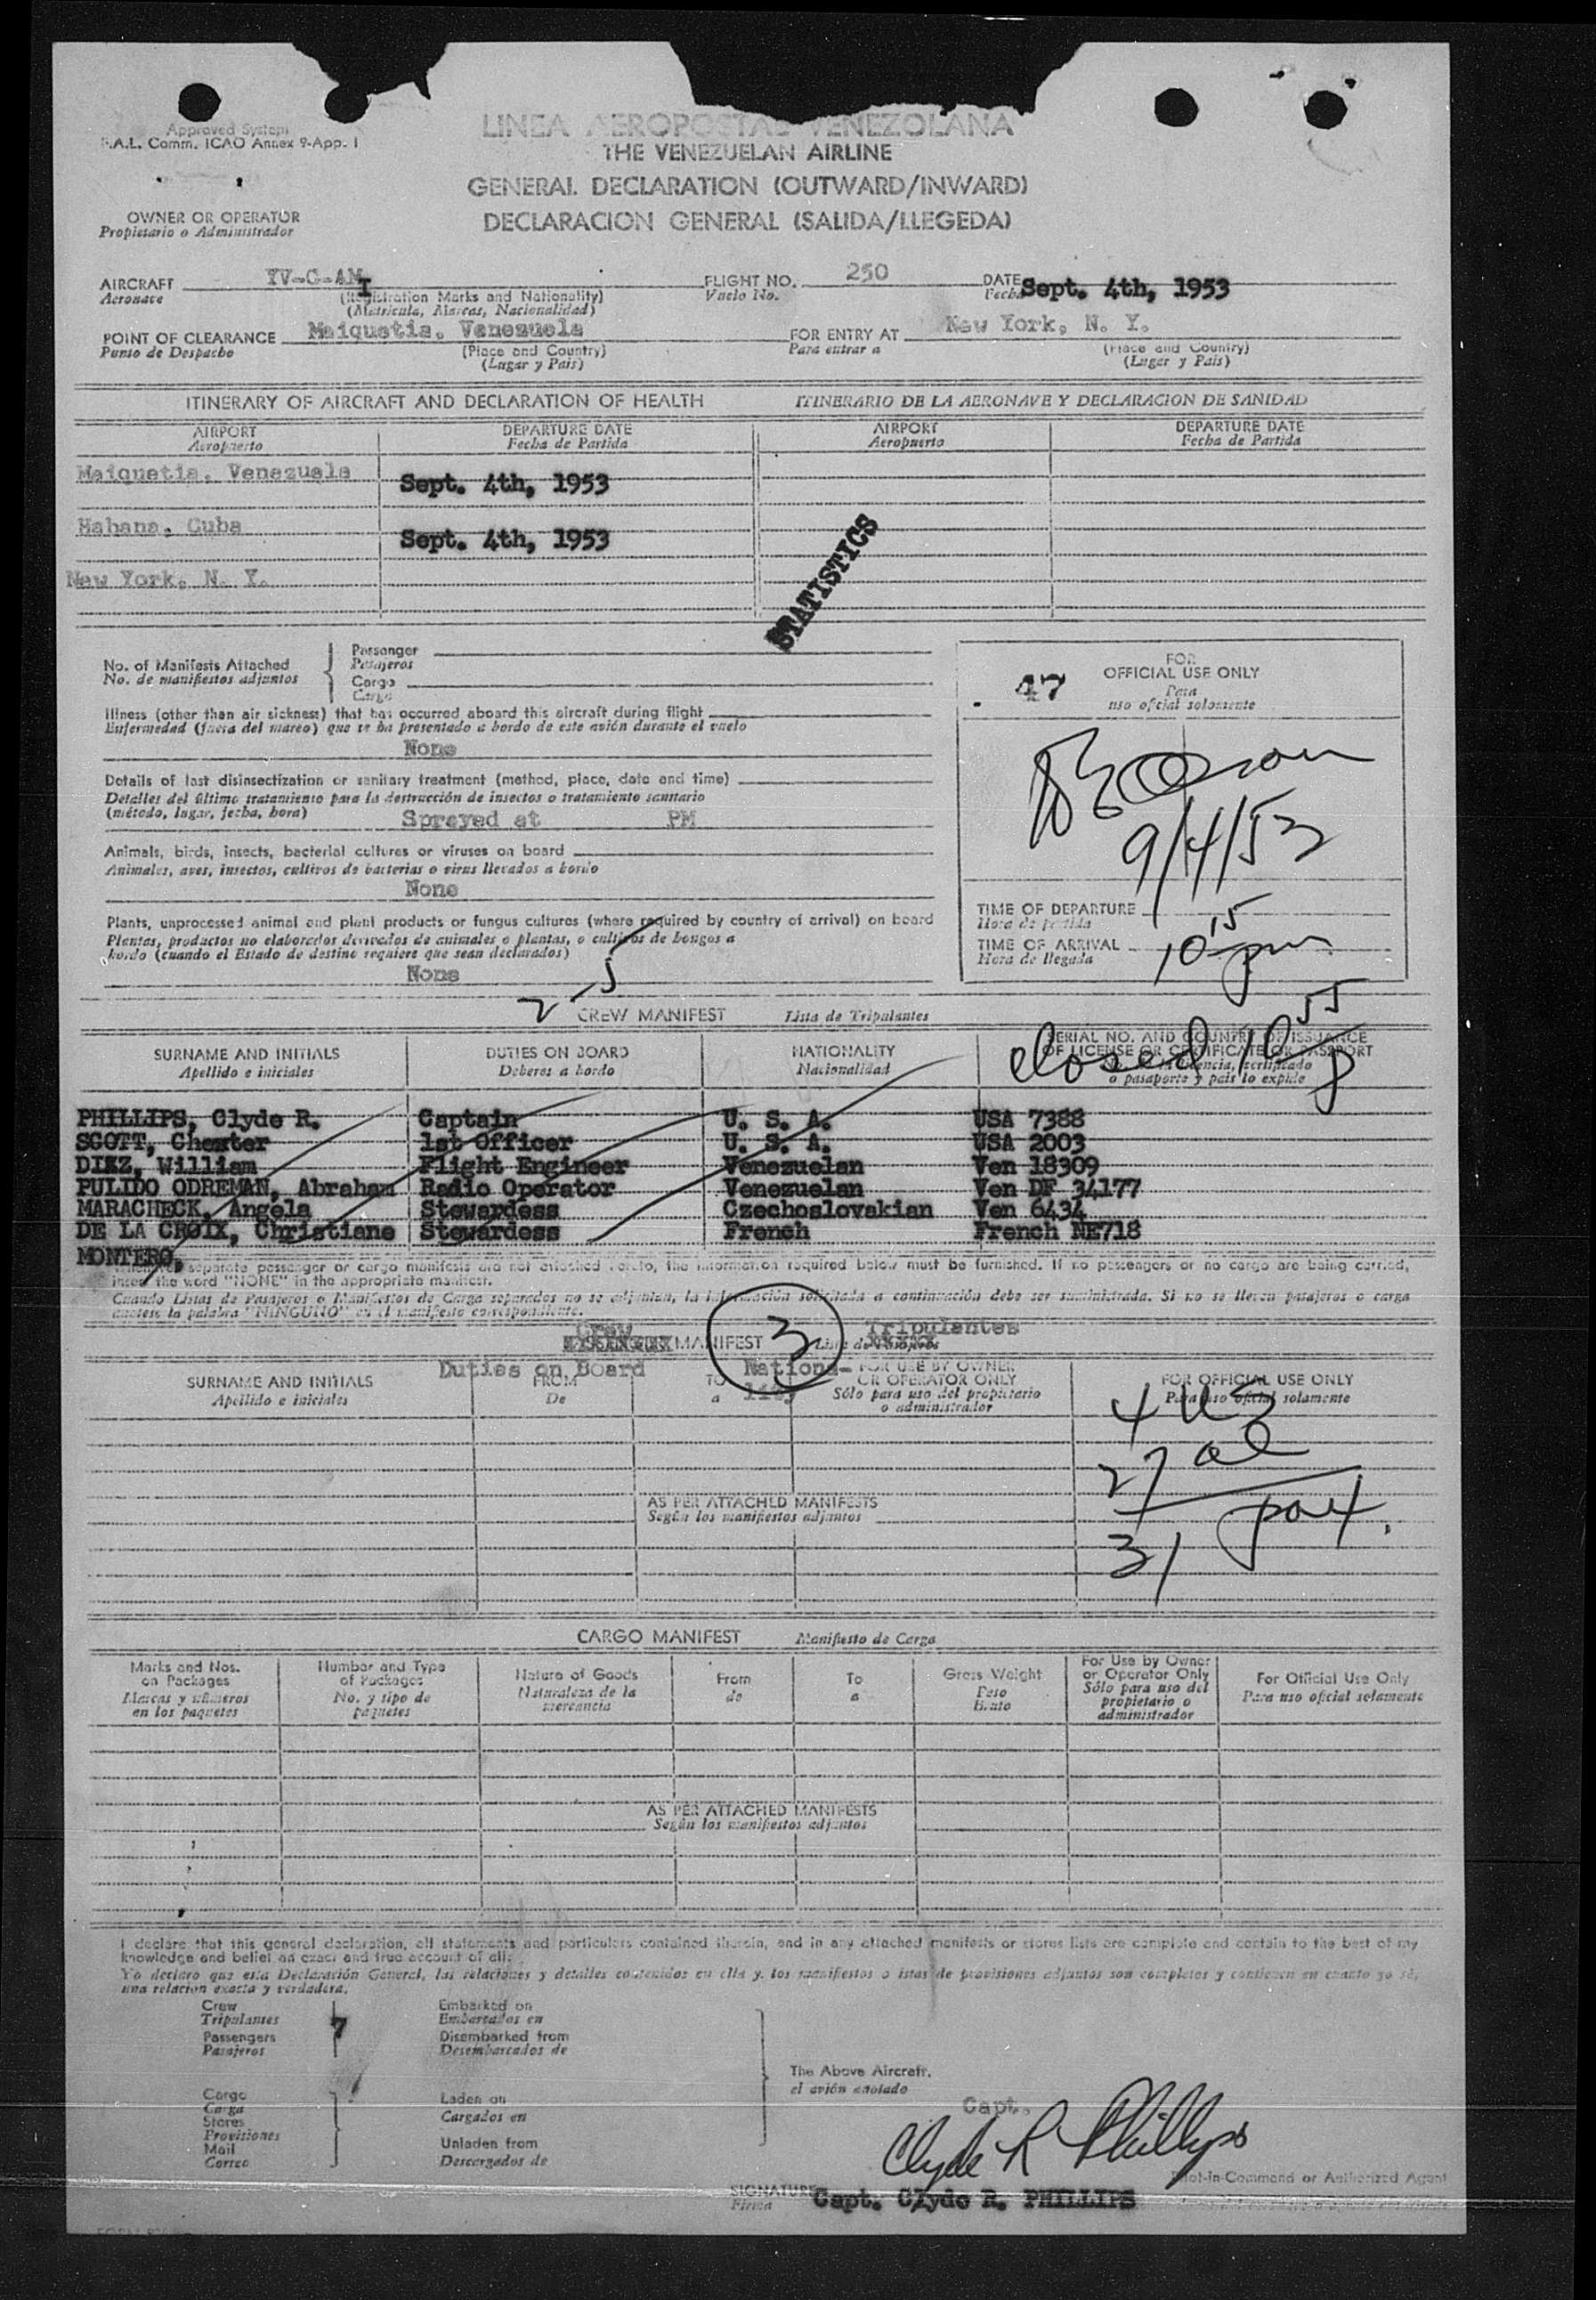 Approved System
F.A.L. Comm. ICAO Annex 9-App. I
LINEA AEROPOSTAL VENEZOLANA
THE VENEZUELAN AIRLINE
GENERAL DECLARATION (OUTWARD/INWARD)
DECLARACION GENERAL (SALIDA/LLEGEDA)
OWNER OR OPERATOR
Propietario o Administrador
AIRCRAFT YV-C-AMI FLIGHT NO. 250 DATE Sept. 4th, 1953
Aeronave (Registration Marks and Nationality) Vuelo No. Fecha
(Matricula, Marcas, Nacionalidad)
POINT OF CLEARANCE Maiquetia, Venezuela FOR ENTRY AT New York, N. Y.
Punto de Despacho (Place and Country) Para entrar a (Place and Country)
(Lugar y Pais) (Lugar y Pais)
ITINERARY OF AIRCRAFT AND DECLARATION OF HEALTH ITINERARIO DE LA AERONAVE Y DECLARACION DE SANIDAD
AIRPORT DEPARTURE DATE AIRPORT DEPARTURE DATE
Aeropuerto Fecha de Partida Aeropuerto Fecha de Partida
Maiquetia, Venezuela Sept. 4th, 1953
Habana, Cuba Sept. 4th, 1953
New York, N. Y.
STATISTICS
No. of Manifests Attached Passenger
No. de manifiestos adjuntos Pasajeros
Cargo
Carga
FOR
OFFICIAL USE ONLY
Para
uso oficial solamente
47
Illness (other than air sickness) that has occurred aboard this aircraft during flight
Enfermedad (fuera del mareo) que se ha presentado a bordo de este avión durante el vuelo
None
Details of last disinsectization or sanitary treatment (method, place, date and time)
Detalles del último tratamiento para la destrucción de insectos o tratamiento sanitario
(método, lugar, fecha, hora) Sprayed at PM
9/4/53
Animals, birds, insects, bacterial cultures or viruses on board
Animales, aves, insectos, cultivos de bacterias o virus llevados a bordo
None
Plants, unprocessed animal and plant products or fungus cultures (where required by country of arrival) on board
Plantas, productos no elaborados derivados de animales o plantas, o cultivos de hongos a
bordo (cuando el Estado de destino requiere que sean declarados)
None
TIME OF DEPARTURE
Hora de partida
TIME OF ARRIVAL 10 15 pm
Hora de llegada
2-5
CREW MANIFEST Lista de Tripulantes
closed 10 55 p
SURNAME AND INITIALS DUTIES ON BOARD NATIONALITY SERIAL NO. AND COUNTRY OF ISSUANCE
OF LICENSE OR CERTIFICATE OR PASSPORT
Apellido e iniciales Deberes a bordo Nacionalidad licencia, certificado
o pasaporte y pais lo expide
PHILLIPS, Clyde R. Captain U. S. A. USA 7388
SCOTT, Chester 1st Officer U. S. A. USA 2003
DIEZ, William Flight Engineer Venezuelan Ven 18309
PULIDO ODREMAN, Abraham Radio Operator Venezuelan Ven DF 34177
MARACHECK, Angela Stewardess Czechoslovakian Ven 6434
DE LA CROIX, Christiane Stewardess French French NE718
MONTERO,
separate passenger or cargo manifests are not attached hereto, the information required below must be furnished. If no passengers or no cargo are being carried,
insert the word "NONE" in the appropriate manifest.
Cuando Listas de Pasajeros o Manifiestos de Carga separados no se adjuntan, la información solicitada a continuación debe ser suministrada. Si no se lleven pasajeros o carga
anótese la palabra "NINGUNO" en el manifiesto correspondiente.
Crew Tripulantes
MANIFEST 3 Lista de Pasajeros
Duties on Board Nationa-
lity
SURNAME AND INITIALS FROM TO FOR USE BY OWNER
OR OPERATOR ONLY FOR OFFICIAL USE ONLY
Apellido e iniciales De a Sólo para uso del propietario
o administrador Para uso oficial solamente
4 US
27 al
31 pax.
AS PER ATTACHED MANIFESTS
Según los manifiestos adjuntos
CARGO MANIFEST Manifiesto de Carga
Marks and Nos.
on Packages
Marcas y números
en los paquetes
Number and Type
of Packages
No. y tipo de
paquetes
Nature of Goods
Naturaleza de la
mercancia
From
de
To
a
Gross Weight
Peso
Bruto
For Use by Owner
or Operator Only
Sólo para uso del
propietario o
administrador
For Official Use Only
Para uso oficial solamente
AS PER ATTACHED MANIFESTS
Según los manifiestos adjuntos
I declare that this general declaration, all statements and particulars contained therein, and in any attached manifests or stores lists are complete and contain to the best of my
knowledge and belief an exact and true account of all:
Yo declaro que esta Declaración General, las relaciones y detalles contenidos en ella y los manifiestos o istas de provisiones adjuntos son completos y contienen en cuanto yo sé,
una relación exacta y verdadera.
Crew Embarked on
Tripulantes 7 Embarcados en
Passengers Disembarked from
Pasajeros Desembarcados de
The Above Aircraft.
el avión anotado
Cargo Laden on
Carga
Stores Cargados en
Provisiones
Mail Unladen from
Correo Descargados de
Capt.
Clyde R Phillips
Pilot-in-Command or Authorized Agent
SIGNATURE Capt. Clyde R. PHILLIPS
Firma